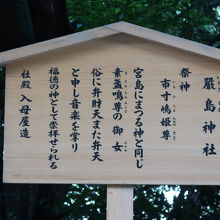 厳島神社
祭神
市寸嶋姫尊
宮島にまつる神と同し
素盞嗚尊の御女
俗に弁財天また弁天
と申し音楽を掌り
福徳の神として崇拝せられる
社殿 入母屋造